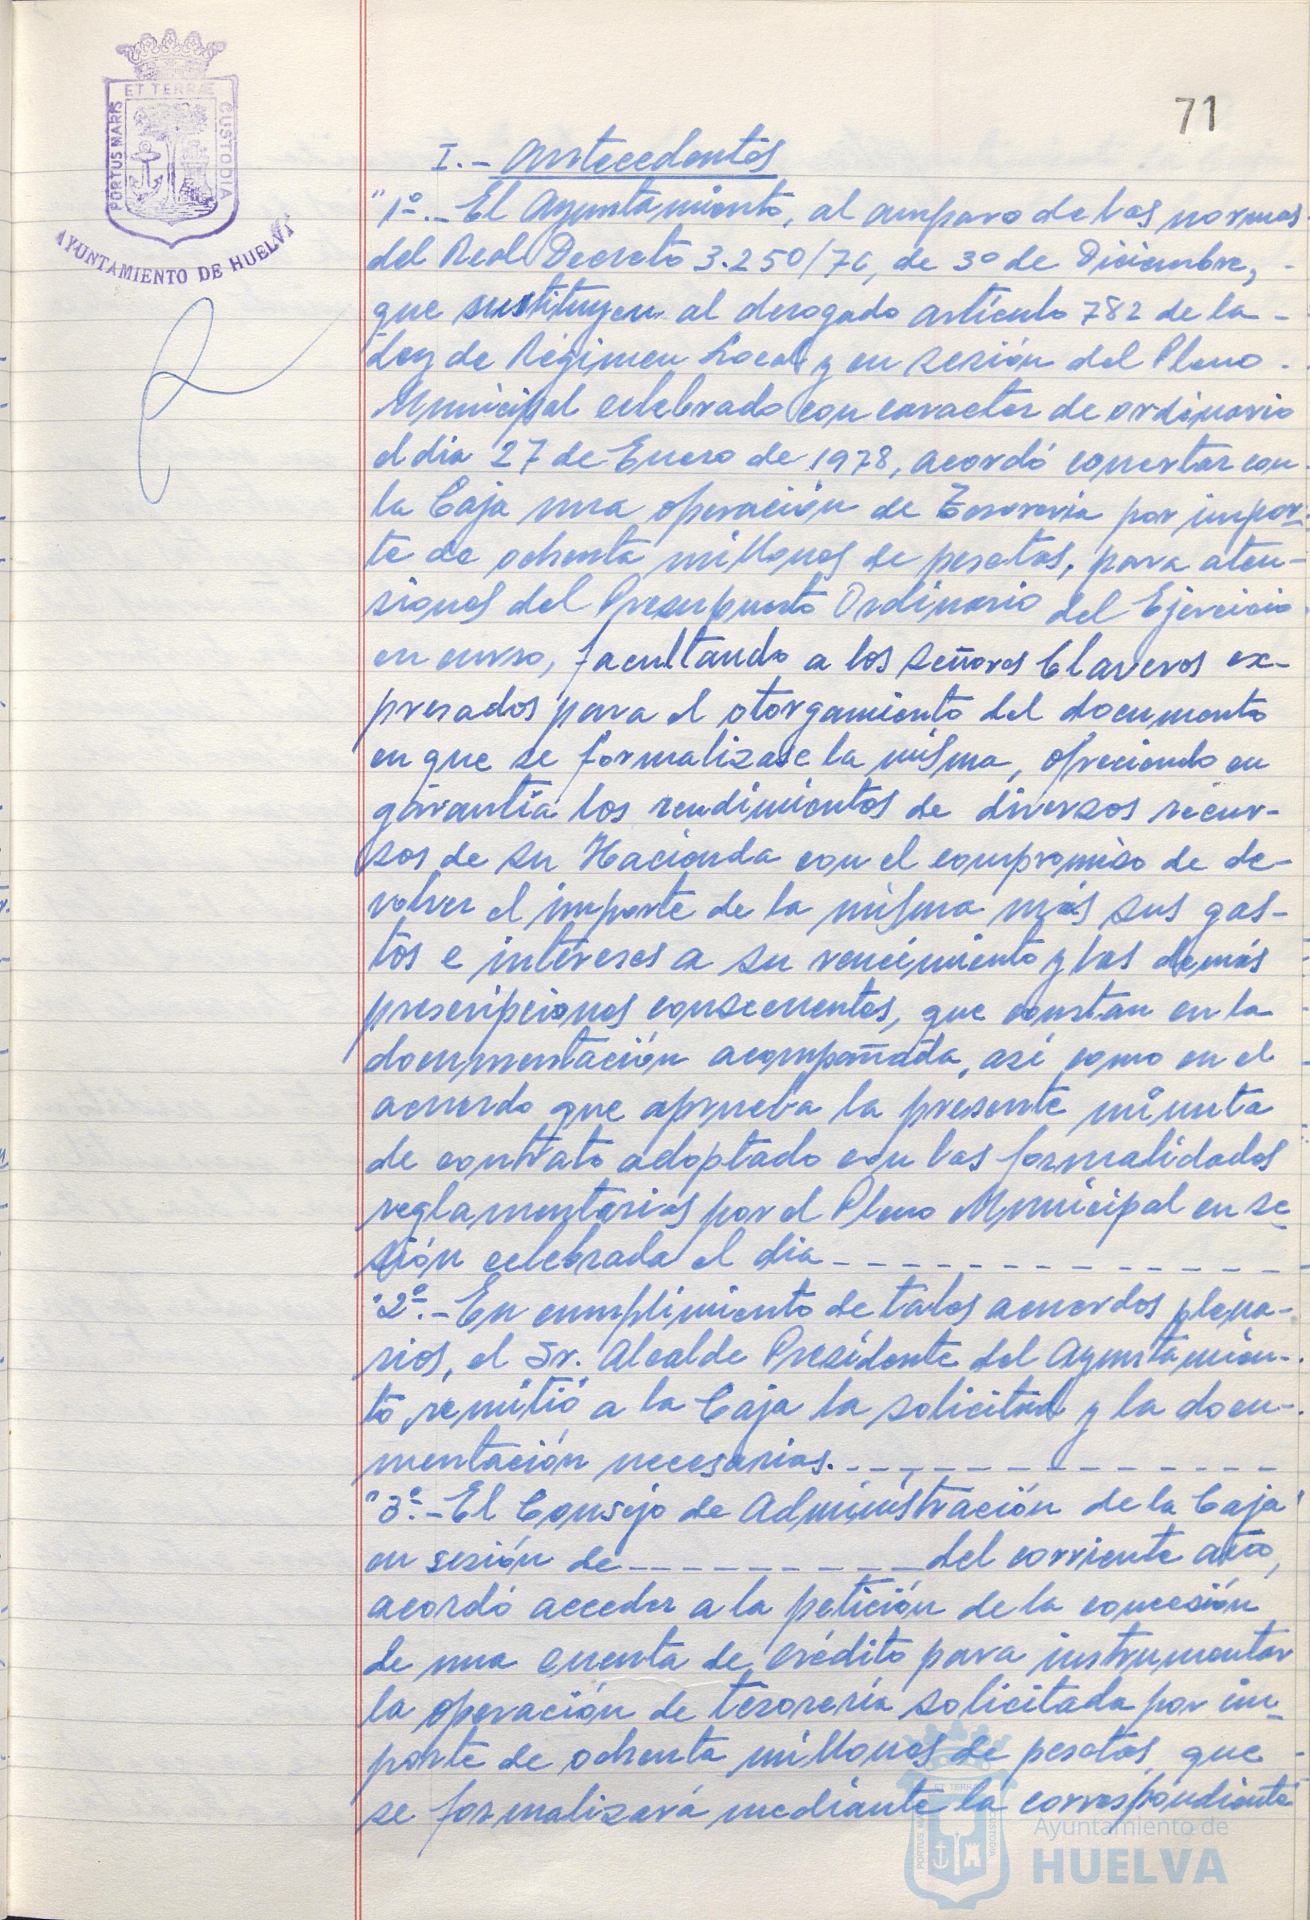 ET TERRÆ
PORTUS MARIS
CUSTODIA
AYUNTAMIENTO DE HUELVA
71
I.- Antecedentes
"1º.- El Ayuntamiento, al amparo de las normas
del Real Decreto 3.250/76, de 30 de Diciembre, -
que sustituyen al derogado artículo 782 de la -
Ley de Régimen Local y en sesión del Pleno -
Municipal celebrado con caracter de ordinario
el dia 27 de Enero de 1978, acordó concertar con
la Caja una operación de Tesoreria por impor-
te de ochenta millones de pesetas, para aten-
siones del Presupuesto Ordinario del Ejercicio
en curso, facultando a los señores Claveros ex-
presados para el otorgamiento del documento
en que se formalizase la misma, ofreciendo en
garantía los rendimientos de diversos recur-
sos de su Hacienda con el compromiso de de-
volver el importe de la misma más sus gas-
tos e intereses a su vencimiento y las demás
prescripciones consecuentes, que constan en la
documentación acompañada, asi como en el
acuerdo que aprueba la presente minuta
de contrato adoptado con las formalidades
reglamentarias por el Pleno Municipal en se-
sión celebrada el dia - - - - - - - - - - - - - -
"2º.- En cumplimiento de tales acuerdos plena-
rios, el Sr. Alcalde Presidente del Ayuntamien-
to, remitió a la Caja la solicitud y la docu-
mentación necesarias. - - - - - - - - - - - - -
"3º.- El Consejo de Administración de la Caja
en sesión de - - - - - - - - - - del corriente año,
acordó acceder a la petición de la concesión
de una cuenta de crédito para instrumentar
la operación de tesorería solicitada por im-
porte de ochenta millones de pesetas, que -
se formalizará mediante la correspondiente
ET TERRÆ
PORTUS MARIS
CUSTODIA
Ayuntamiento de
HUELVA